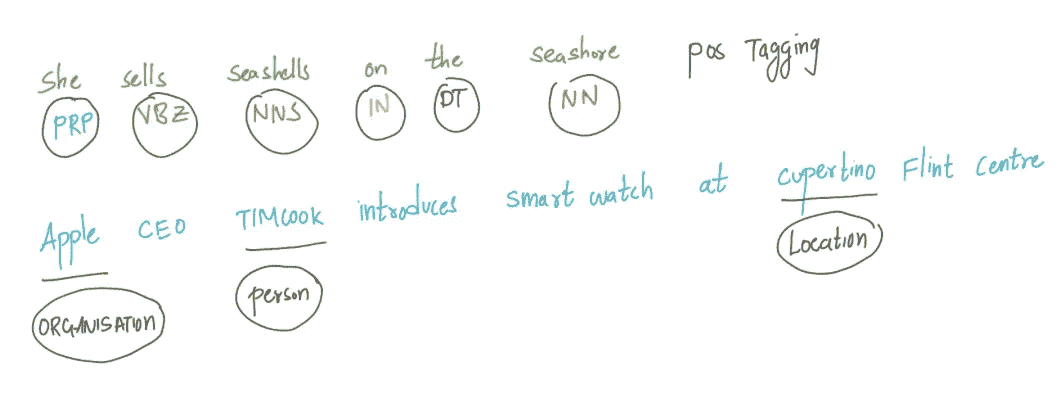 She sells seashells on the seashore pos Tagging
PRP VBZ NNS IN DT NN
Apple CEO TIMCOOK introduces smart watch at cupertino Flint Centre
ORGANISATION person Location